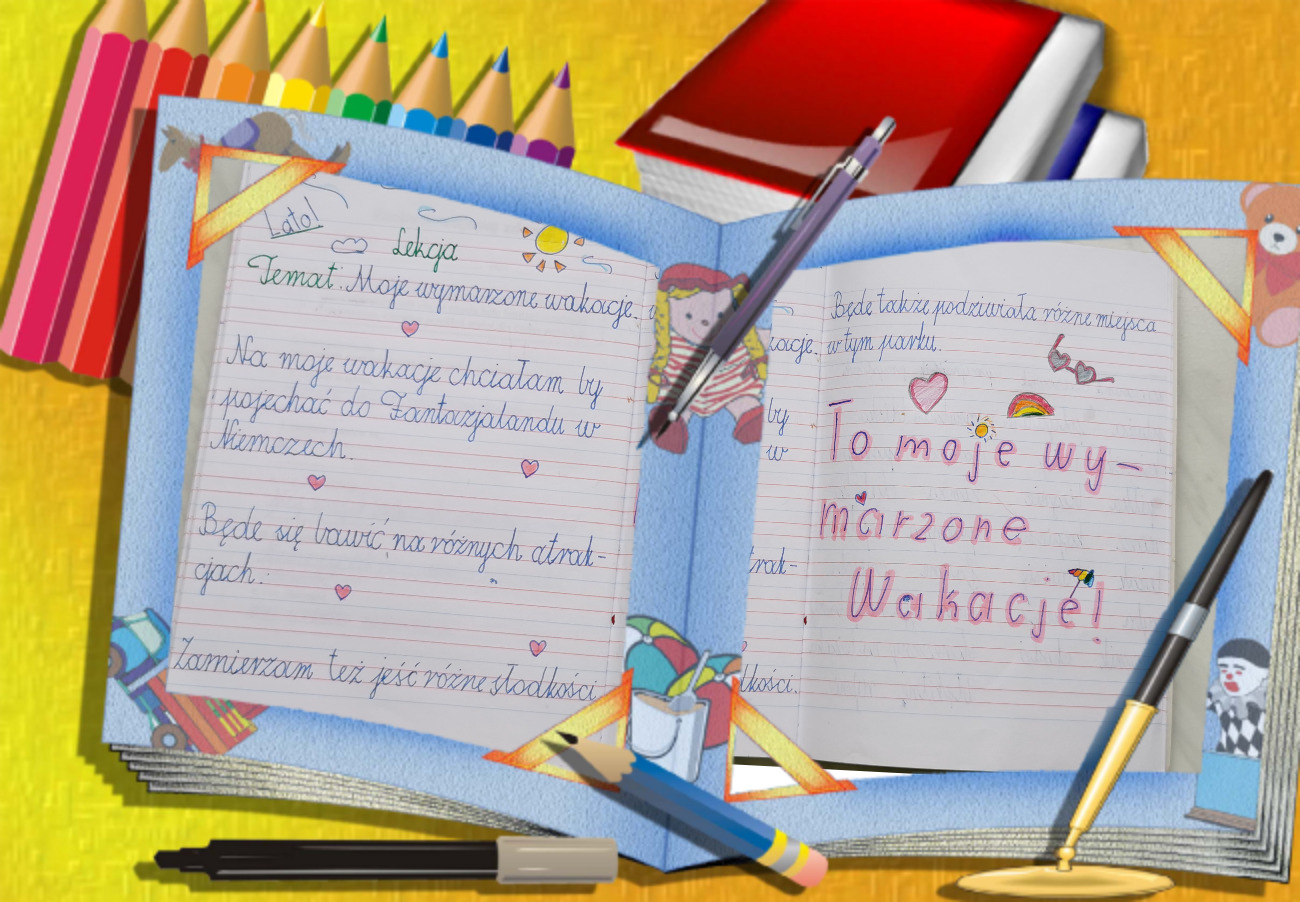 Lato!
Lekcja
Temat: Moje wymarzone wakacje.
Na moje wakacje chciałam by
pojechać do Fantazjalandu w
Niemczech.
Będe się bawić na różnych atrak-
cjach.
Zamierzam też jeść różne słodkości.
kacje.
by
w
trak-
dkości.
Będe także podziwiała różne miejsca
w tym parku.
To moje wy-
marzone
Wakacje!